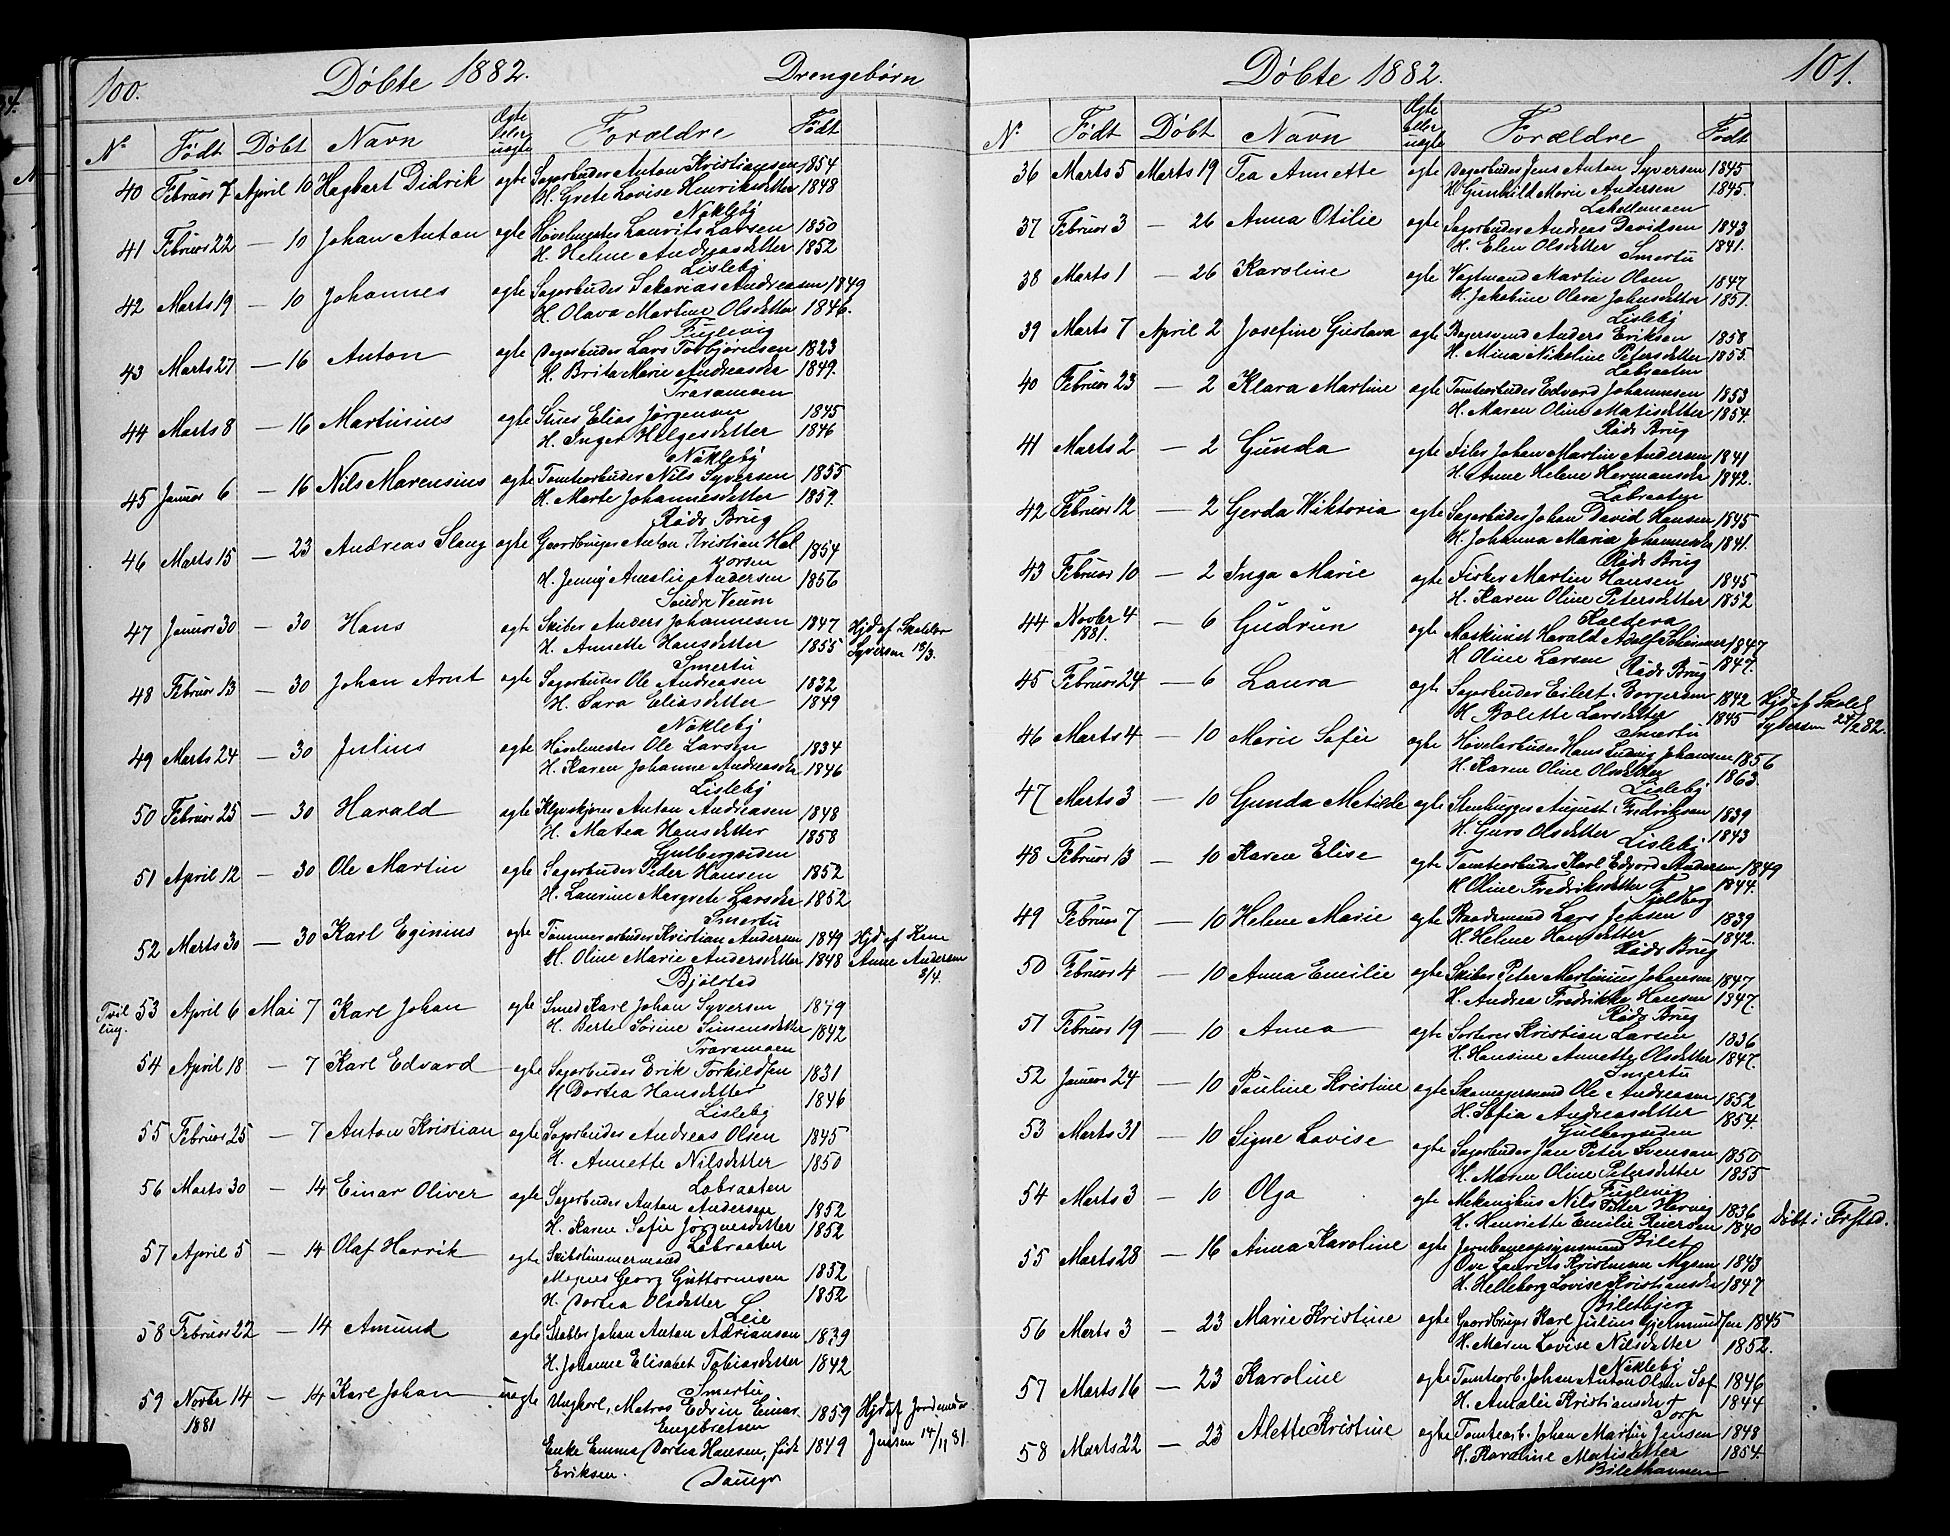 100.
Døbte 1882.
Drengebørn
No Født Døbt Navn Ægte eller uægte Forældre Født
40 Februar 7 April 10 Hagbert Didrik ægte Sagarbeider Anton Kristiansen 1854
H. Grete Lovise Henriksdetter 1848
Nøkleby
41 Februar 22 — 10 Johan Anton ægte Høvelmester Laurits Larsen 1850
H. Helene Andreasdetter 1852
Lisleby
42 Marts 19 — 10 Johannes ægte Sagarbeider Sakarias Andreasen 1849
H. Olava Martine Olsdetter 1846.
Fuglevig
43 Marts 27 — 16 Anton ægte Dagarbeider Lars Torbjørnsen 1823
H. Brita Marie Andreasdr 1849.
Traramoen
44 Marts 8 — 16 Martinius ægte Stuer Elias Jørgensen 1845
H. Inger Helgesdetter 1846
Nøkleby
45 Januar 6 — 16 Nils Marensius ægte Tomtearbeider Nils Syversen 1855
H. Marte Johannesdetter 1859.
Røds Brug
46 Marts 15 — 23 Andreas Slang ægte Gaardbruger Anton Kristian Hal
vorsen 1854
H. Jenny Amalie Andersen 1856
Søndre Veum
47 Januar 30 — 30 Hans ægte Skiber Anders Johannesen 1847 Hjd af Skolelær
H. Annette Hansdetter 1855 Syversen 18/3.
Smertu
48 Februar 13 — 30 Johan Arnt ægte Sagarbeider Ole Andreasen 1832
H. Sara Eliasdetter 1849
Nøkleby
49 Marts 24 — 30 Julius ægte Høvelmester Ole Larsen 1834
H. Karen Johanne Andreasdr 1846
Lisleby
50 Februar 25 — 30 Harald ægte Klyvskjører Anton Andreasen 1848
H. Matea Hansdetter 1858
Gulbergsiden
51 April 12 — 30 Ole Martin ægte Sagarbeider Peder Hansen 1852
H. Laurine Margrete Larsdr 1852
Smertu
52 Marts 30 — 30 Karl Eginius ægte Tømmerarbeider Kristian Andersen 1849 Hjd af Kone
H. Oline Marie Andersdetter 1848 Anne Andersen
Bjølstad 3/4.
Tvil
ling. 53 April 6 Mai 7 Karl Johan ægte Smed Karl Johan Syversen 1849
H. Berte Sørine Simensdetter 1842
Traramoen
54 April 18 — 7 Karl Edvard ægte Sagarbeider Erik Torkildsen 1831
H Dortea Hansdetter 1846
Lisleby
55 Februar 25 — 7 Anton Kristian ægte Sagarbeider Andreas Olsen 1845
H. Annette Nilsdetter 1850
Labraaten
56 Marts 30 — 14 Einar Oliver ægte Sagarbeider Anton Andersen 1852
H. Karen Sofie Jørgensdetter 1852
Labraaten
57 April 5 — 14 Olaf Henrik ægte Skibstømmermand
Magnus Georg Guttormsen 1852
H. Dortea Olsdetter 1852
Leie
58 Februar 22 — 14 Amund ægte Stabler Johan Anton Adriansen 1839
H. Johanne Elisabet Tobiasdetter 1842
Smertu
59 Novbr 14 — 14 Karl Johan uægte Ungkarl, Matros Edvin Einar 1859 Hjd af Jordemoder
1881 Engebretsen Jensen 14/11 81.
Enke Emma Dortea Hansen, født 1849
Eriksen.
101.
Døbte 1882.
No Født Døbt Navn Ægte eller uægte Forældre Født
36 Marts 5 Marts 19 Tea Annette ægte Dagarbeider Jens Anton Syversen 1845
H Gunhild Marie Andersen 1845.
37 Februar 3 — 26 Anna Otilie ægte Sagarbeider Andreas Davidsen 1843
H. Elen Olsdetter 1841.
Smertu
38 Marts 1 — 26 Karoline ægte Vagtmand Martin Olsen 1847
H. Jakobine Olava Johnsdetter 1851.
Lisleby
39 Marts 7 April 2 Josefine Gustava ægte Bøgersvend Anders Eriksen 1858
H. Mina Nikoline Petersdetter 1855.
Labraaten
40 Februar 23 — 2 Klara Martine ægte Tomtearbeider Edvard Johannesen 1853
H. Maren Oline Matisdetter 1854.
Røds Brug
41 Marts 2 — 2 Gunda ægte Filer Johan Martin Andersen 1841
H. Anne Helene Hermansdr 1842.
Labraaten
42 Februar 12 — 2 Gerda Viktoria ægte Sagarbeider Johan David Hansen 1845
H. Johanna Maria Johannesdr 1841.
Røds Brug
43 Februar 10 — 2 Inga Marie ægte Fisker Martin Hansen 1845
H. Karen Oline Petersdetter 1852
Kaltera
44 Novber 4 — 6 Gudrun ægte Maskinist Harald Adolf 1847
1881. H Oline Larsen 1847.
Røds Brug
45 Februar 24 — 6 Laura ægte Sagarbeider Eilert Borgersen 1842 Hjd af Skolel
H Bolette Larsdetter 1845 Syversen 24/2 82.
Smertu
46 Marts 4 — 10 Marie Sofie ægte Høvelarbeider Hans Ludvig Johansen 1856
H. Karen Oline Olsdetter 1863.
Lisleby
47 Marts 3 — 10 Gunda Matilde ægte Stenhugger August Fredriksen 1839
H. Guro Olsdetter 1843
Lisleby
48 Februar 13 — 10 Karen Elise ægte Tomtearbeider Karl Edvard Andersen 1849
H Oline Fredriksdetter 1844.
Fjeldberg
49 Februar 7 — 10 Helene Marie ægte Baadsmand Lars Jensen 1839
H. Helene Hansdetter 1842.
Røds Brug
50 Februar 4 — 10 Anna Emilie ægte Skiber Peter Martinius Johansen 1847
H. Andrea Fredrikke Hansen 1847.
Røds Brug
51 Februar 19 — 10 Anna ægte Sorterer Kristian Larsen 1836
H. Hansine Annette Olsdetter 1847.
Smertu
52 Januar 24 — 10 Pauline Kristine ægte Skomagersvend Ole Andreasen 1852
H. Sofia Andreasdetter 1854.
Gulbergsiden
53 Marts 31 — 10 Signe Lovise ægte Sagarbeider Jan Peter Svensen 1850
H. Maren Oline Petersdetter 1855
Fuglevig
54 Marts 3 — 10 Olga ægte Mekanikus Nils Peter Hervig 1836 Døbt i Frstad.
H. Henriette Emilie Reiersen 1840
Bilet
55 Marts 28 — 16 Anna Karoline ægte Jernbaneopsynsmand
Ove Laurits Kristensen Mysen 1843
H. Helleborg Lovise Kristiansdr 1847
Biletbjerg
56 Marts 3 — 23 Marie Kristine ægte Gaardbruger Karl Julius Gjermundsen 1845
H. Maren Lovise Nilsdetter 1852.
Nøkleby
57 Marts 16 — 23 Karoline ægte Tomtearb. Johan Anton Olsen 1846
H. Amalie Kristiansdr 1844
Torp
58 Marts 22 — 23 Alette Kristine ægte Tomtearb. Johan Martin Jensen 1848
H. Karoline Matisdetter 1854.
Bilethavnen